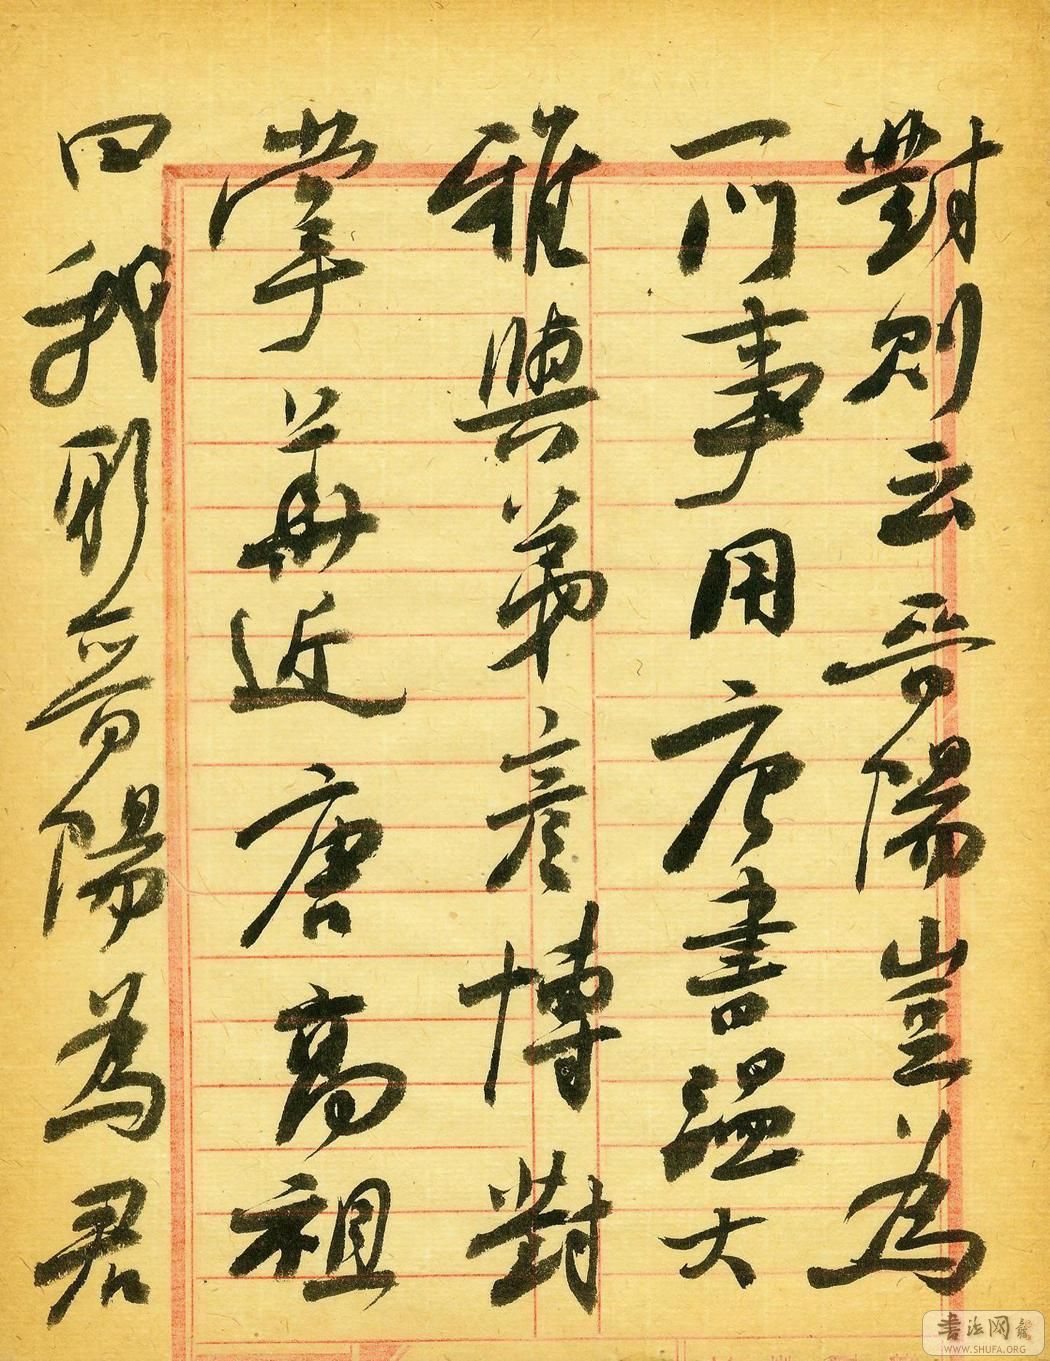 對則云晉陽豈為
一門事用唐書溫大
雅與弟彥博對
掌華近唐高祖
曰我起晉陽為君
書法网
WWW.SHUFA.ORG